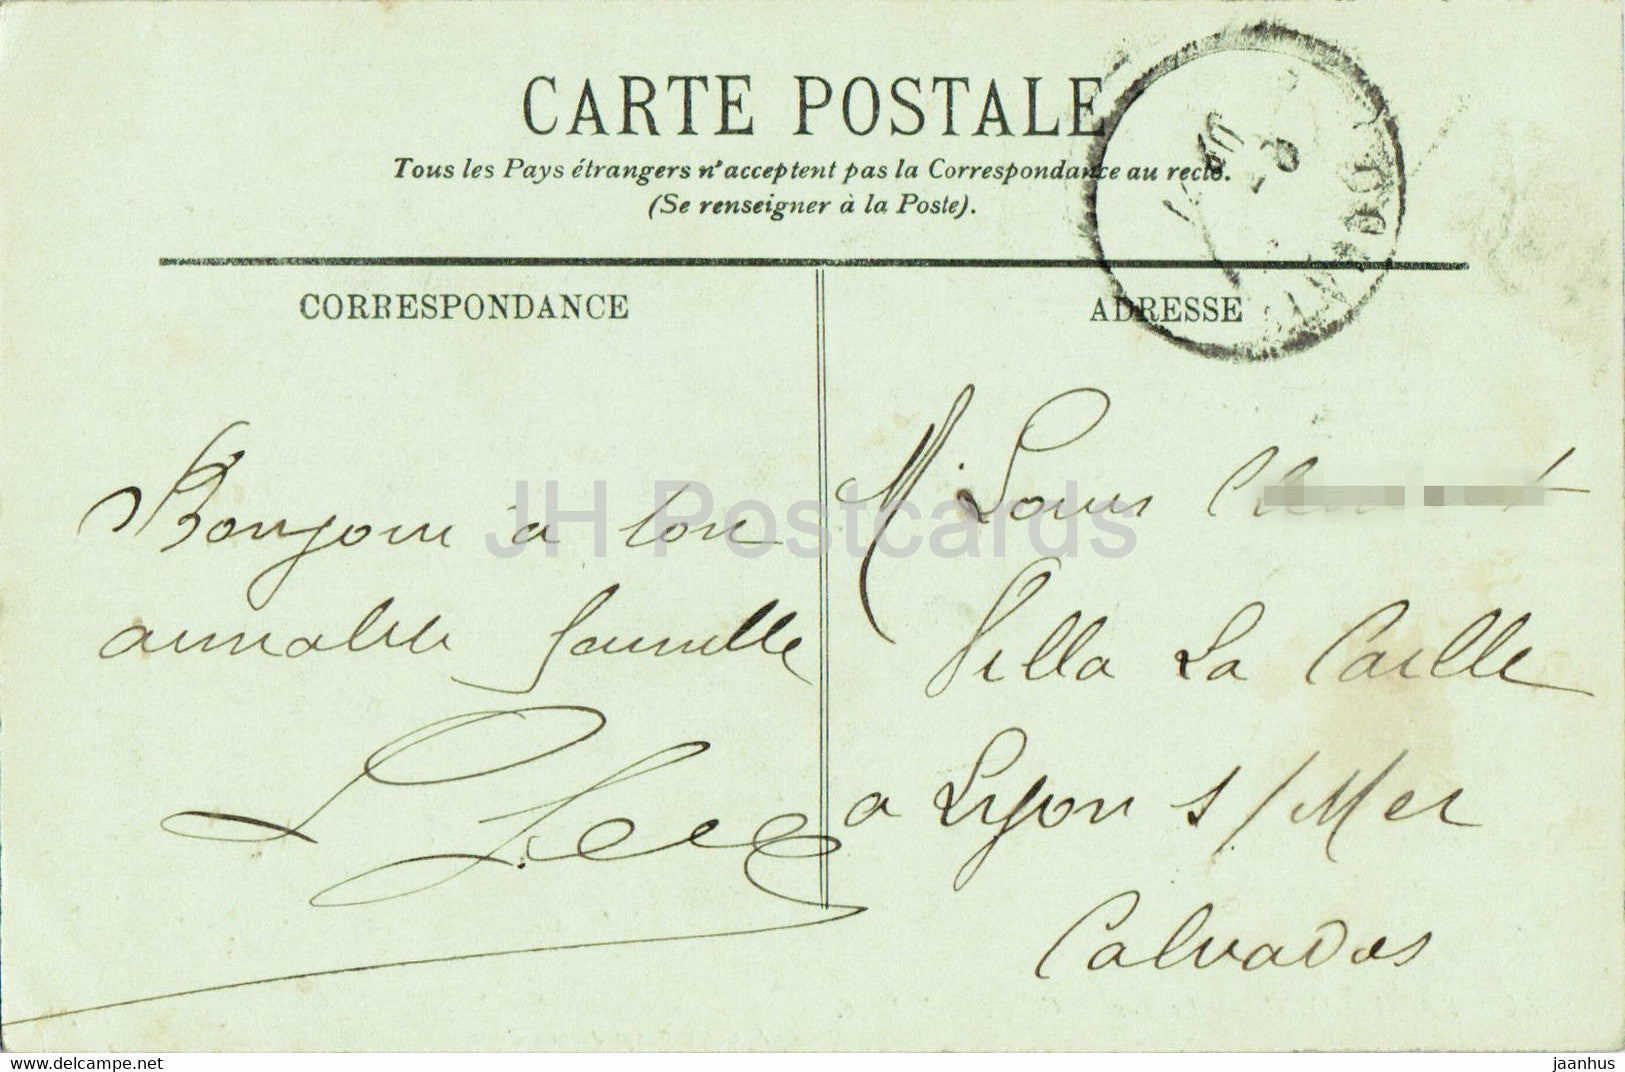 CARTE POSTALE
Tous les Pays étrangers n'acceptent pas la Correspondance au recto.
(Se renseigner à la Poste).
CORRESPONDANCE
ADRESSE
Bonjour à ton
aimable famille
M. Louis
Villa La Caille
a Lyon s/Mer
Calvados
JH Postcards
delcampe.net
jaanhus